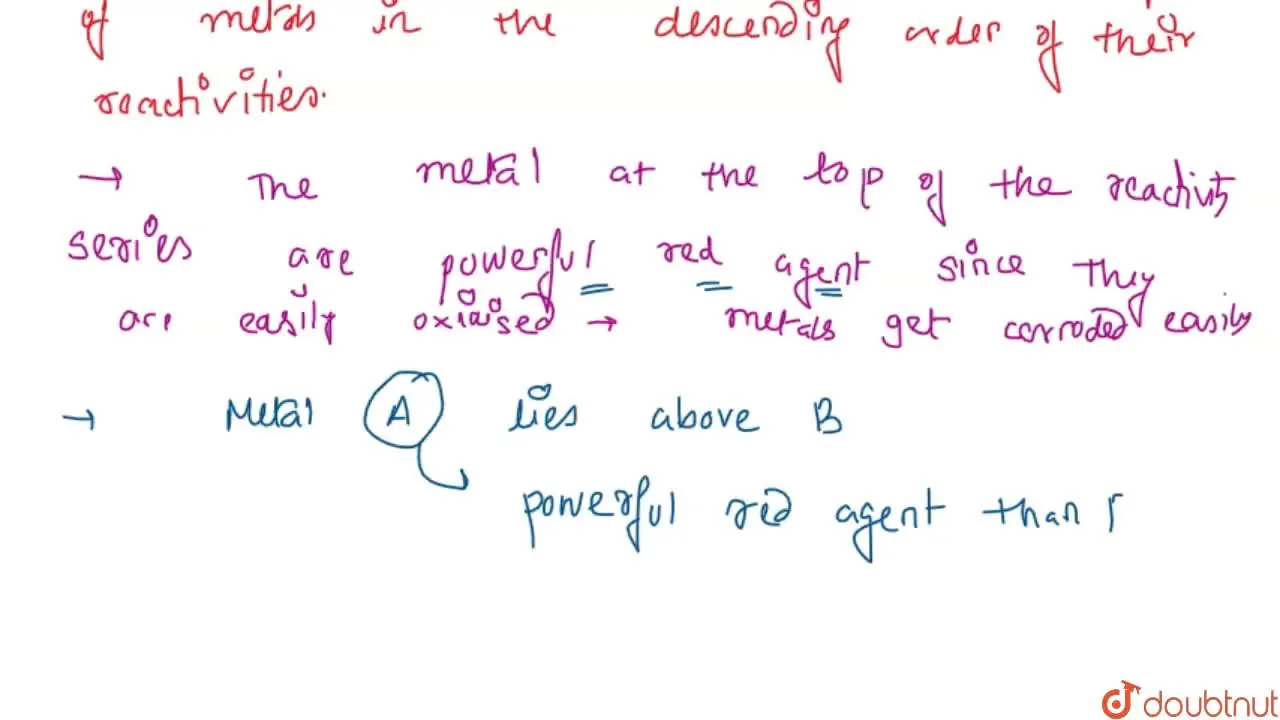 of metals in the descending order of their
reactivities.
→ The metal at the top of the reactivity
series are powerful red agent since they
are easily oxidised → metals get corroded easily
→ Metal A lies above B
powerful red agent than
doubtnut